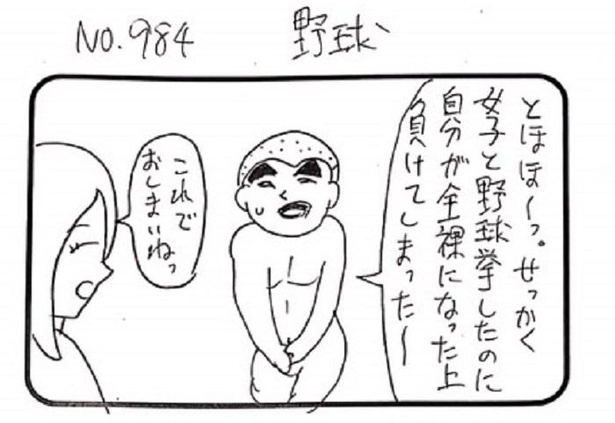 NO.984 野球
とほほ〜っ。せっかく
女子と野球拳したのに
自分が全裸になった上
負けてしまった〜
これで
おしまいねっ